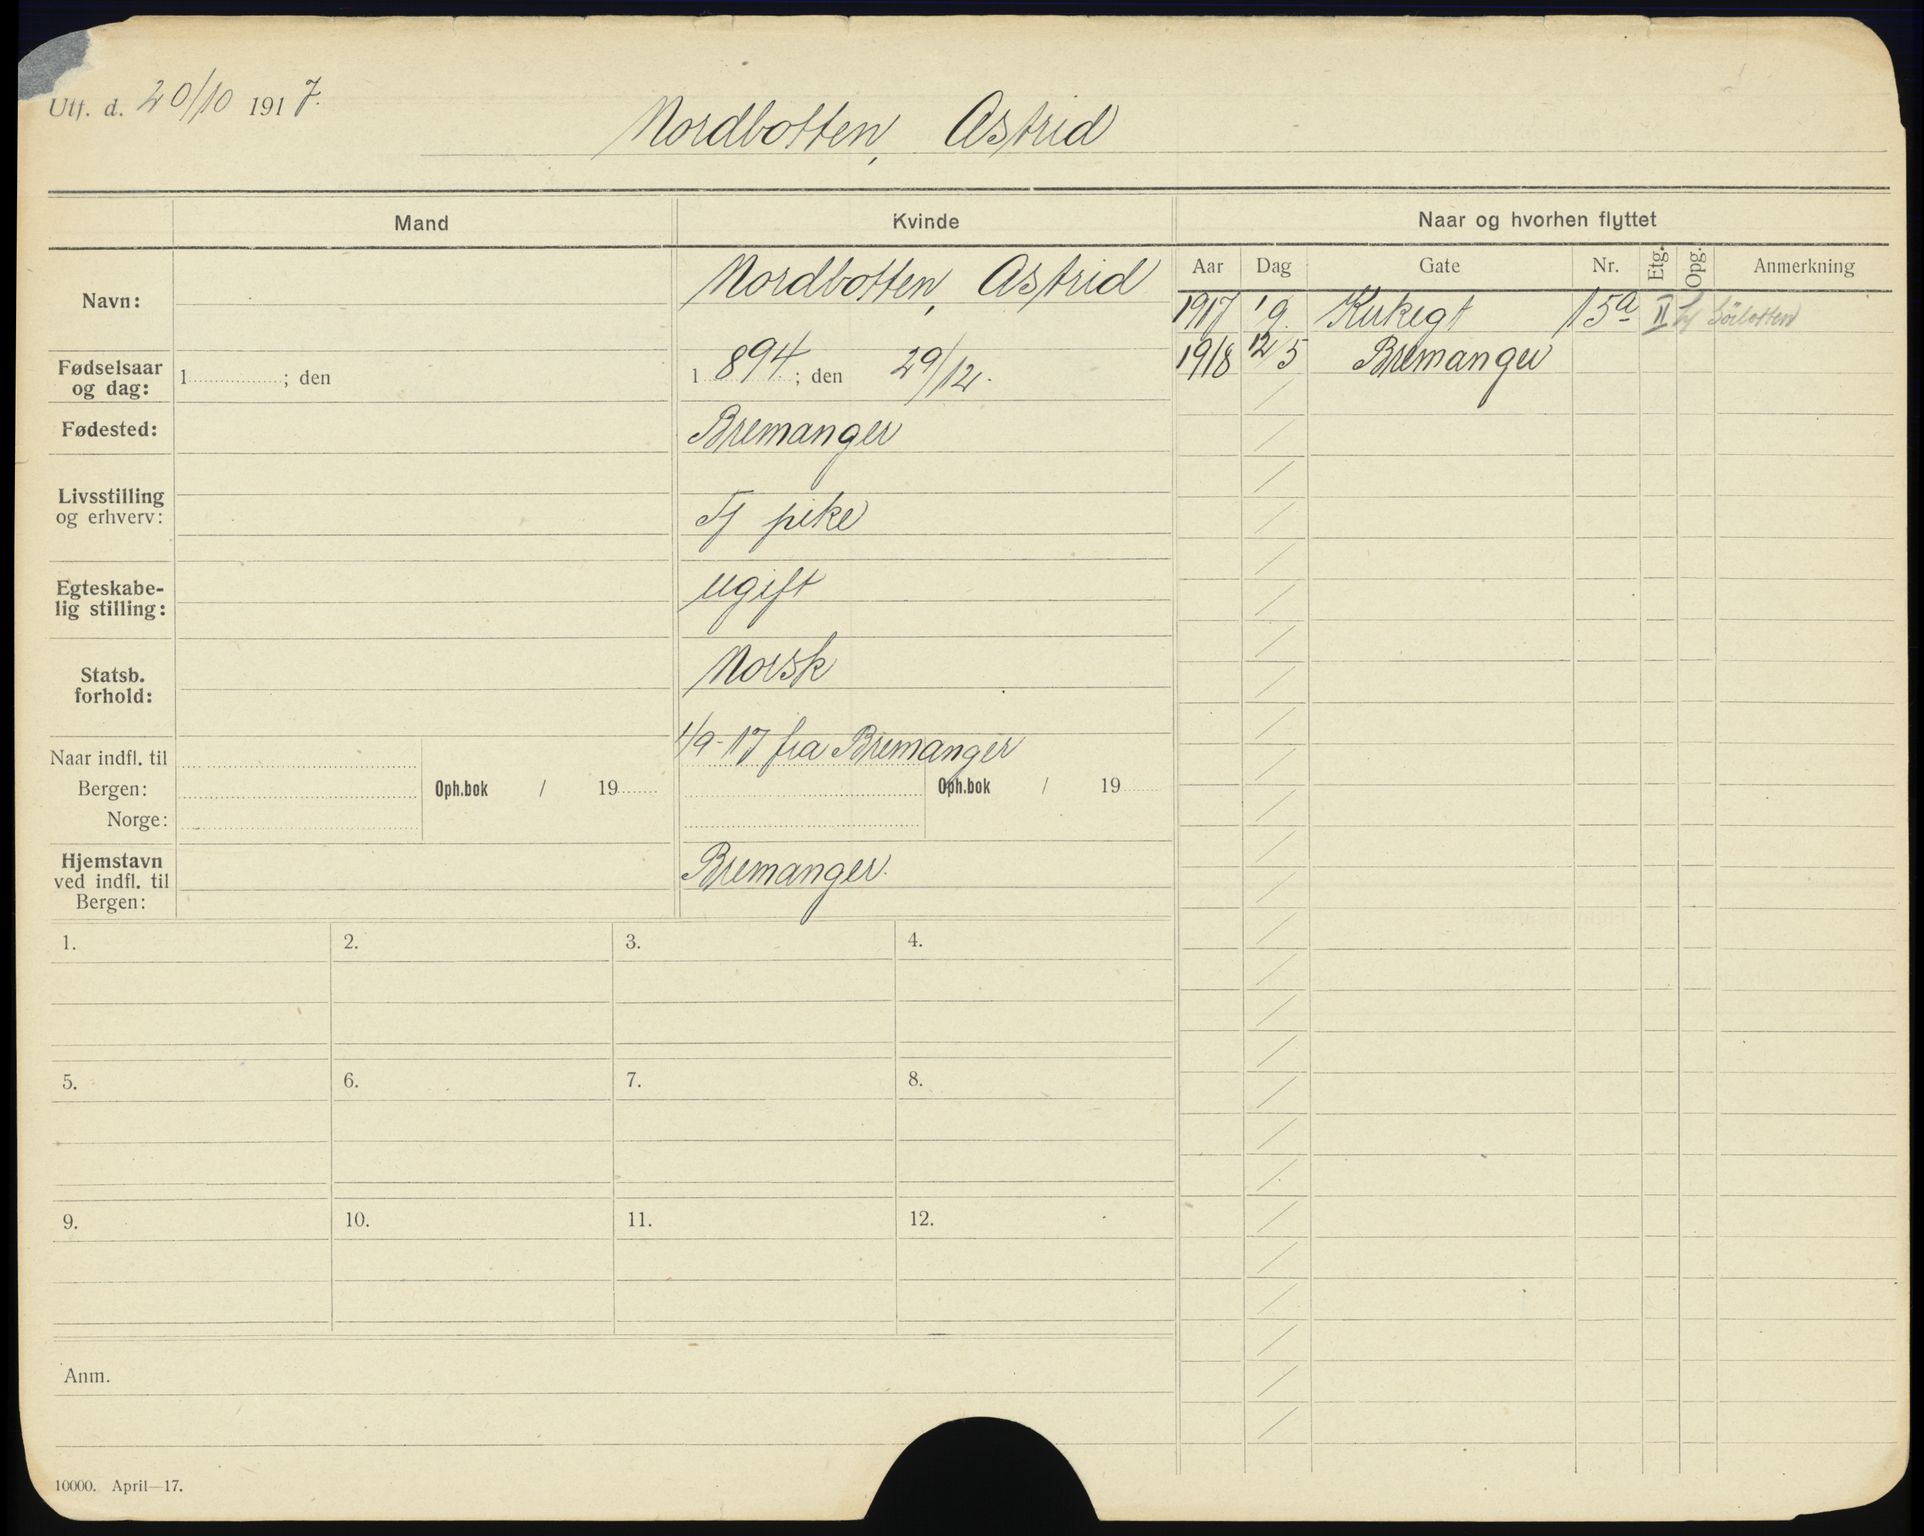 Utf. d. 20/10 1917.
Nordbotten, Astrid
Mand
Kvinde
Naar og hvorhen flyttet
Navn:
Nordbotten, Astrid
Aar Dag Gate Nr. Etg. Opg. Anmerkning
1917 1/9. Kirkegt 15a II
1918 12/5 Bremanger
Fødselsaar og dag:
1 ; den
1894; den 29/12.
Fødested:
Bremanger
Livsstilling og erhverv:
Tj pike
Egteskabe-
lig stilling:
ugift
Statsb. forhold:
Norsk
Naar indfl. til
Bergen:
Norge:
Oph.bok / 19
1/9-17 fra Bremanger
Oph.bok / 19
Hjemstavn
ved indfl. til
Bergen:
Bremanger.
1. 2. 3. 4.
5. 6. 7. 8.
9. 10. 11. 12.
Anm.
10000. April—17.